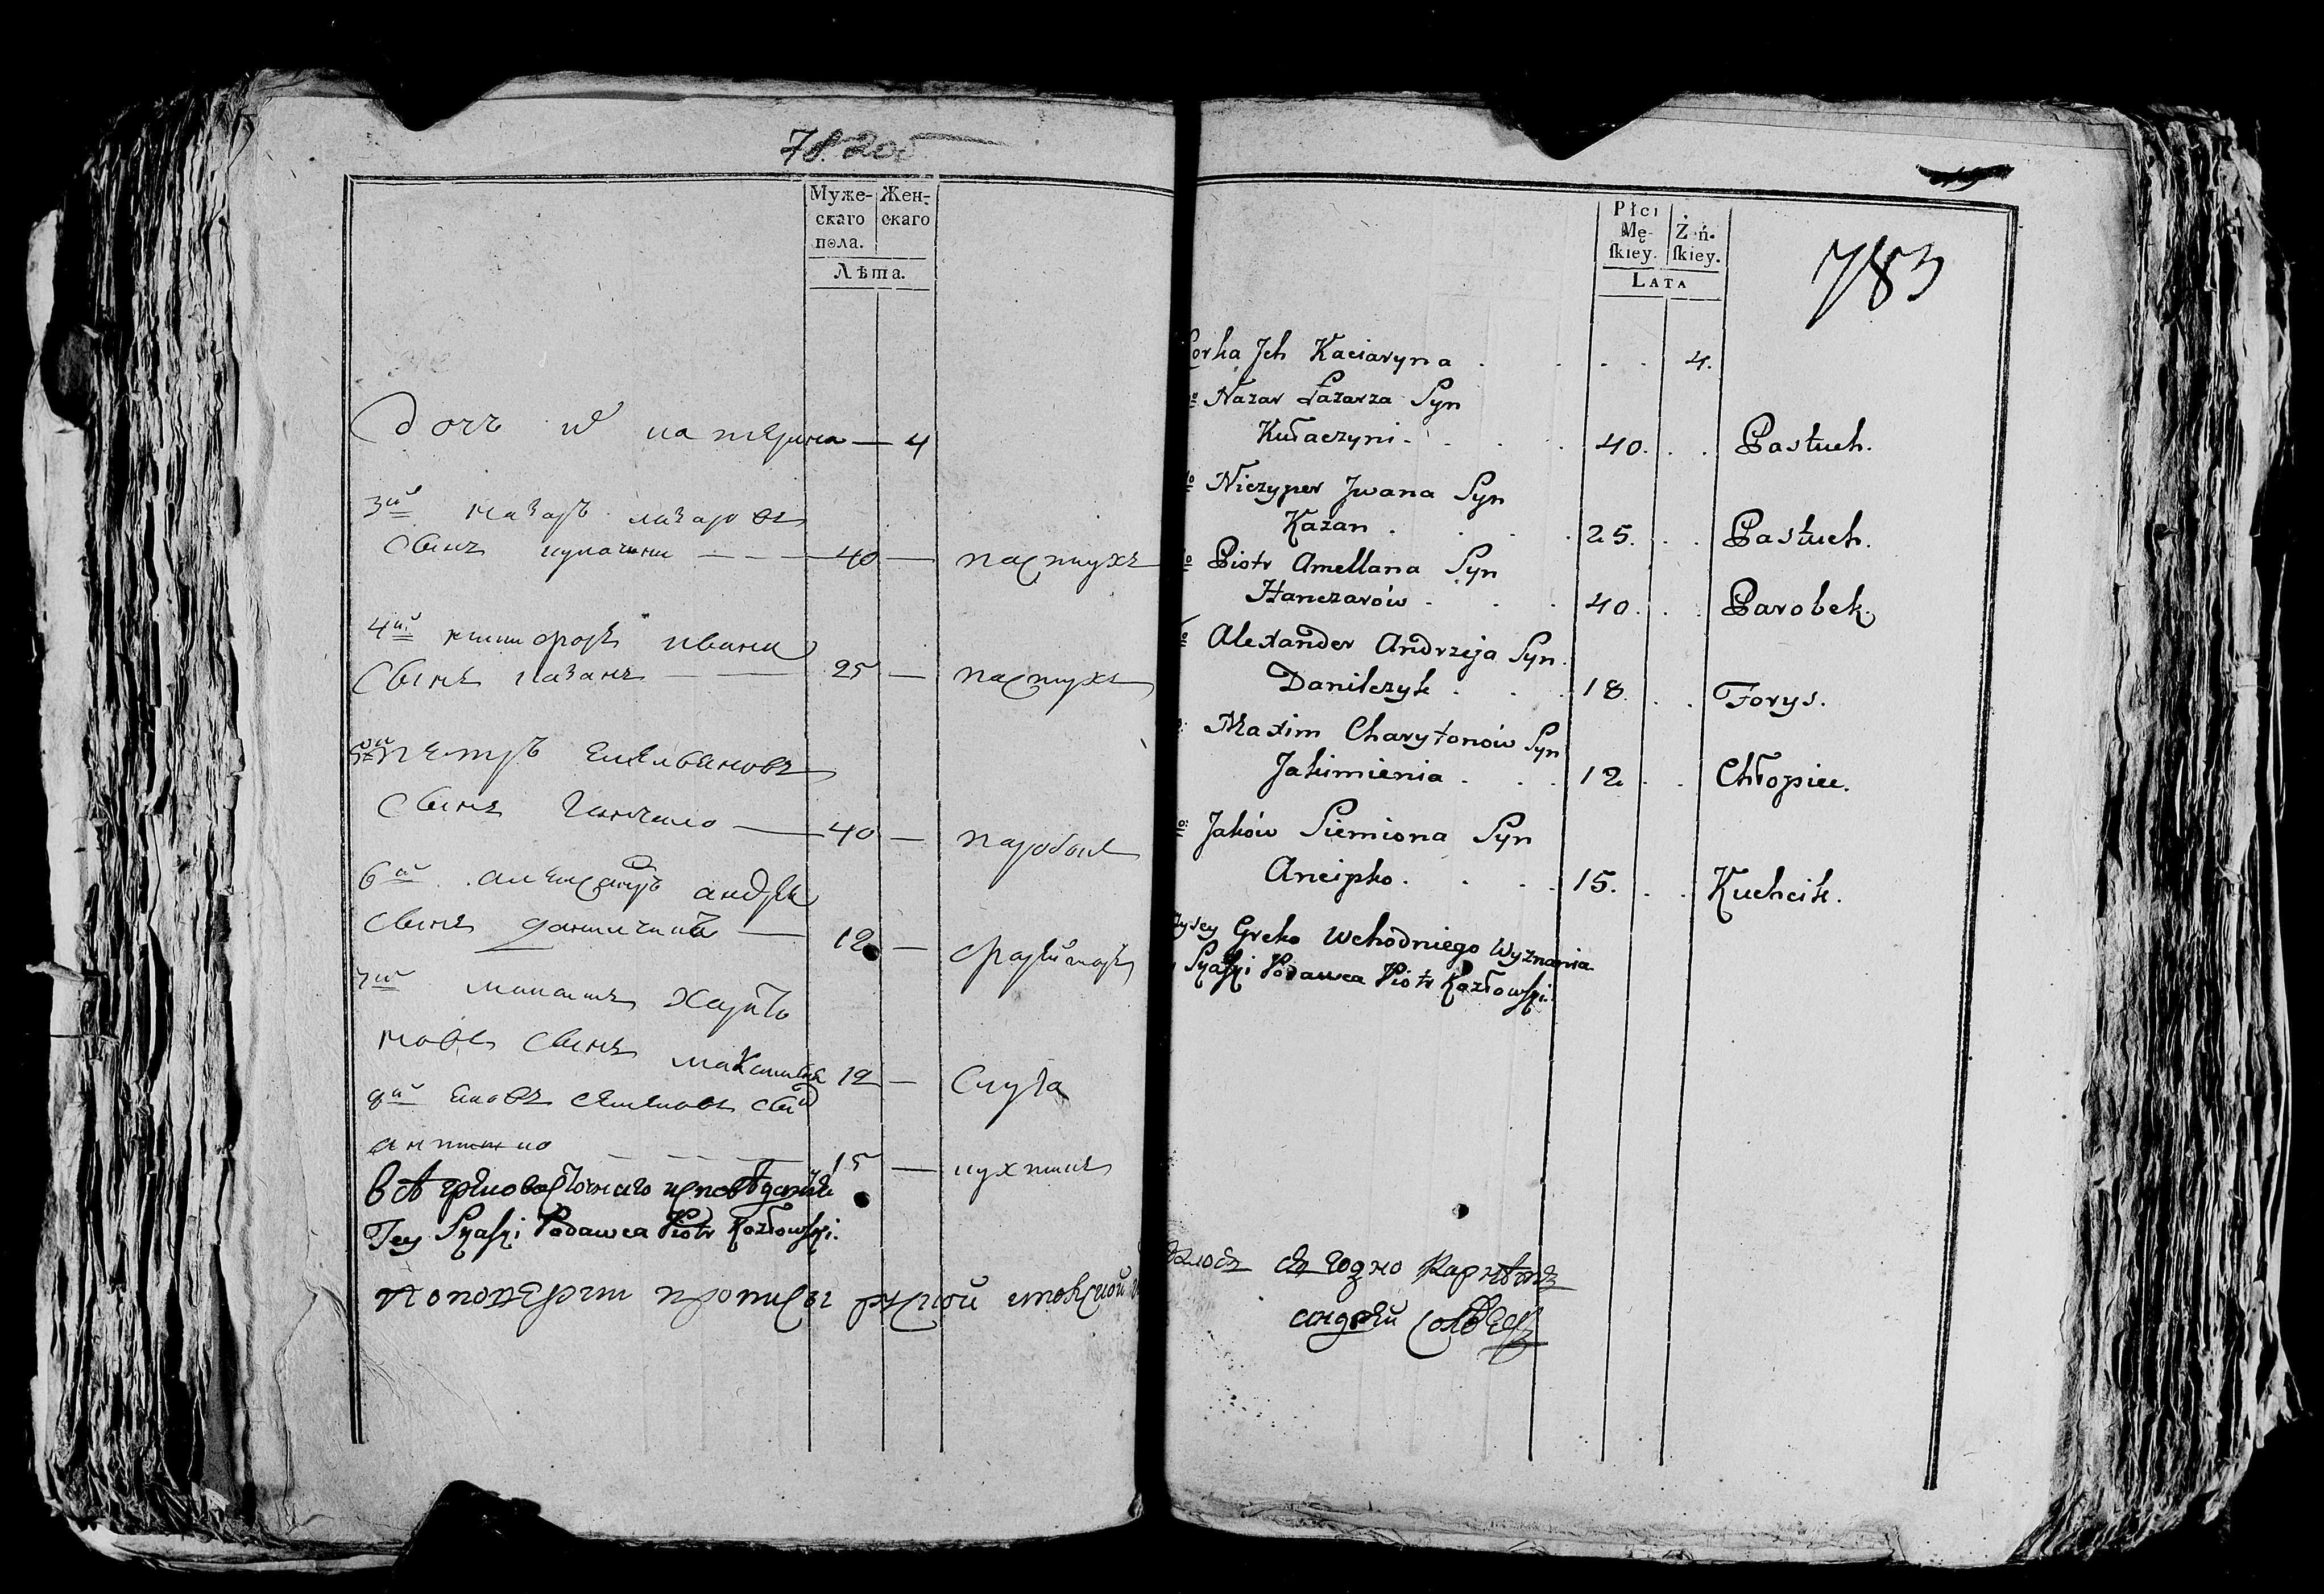 78. 205
Муже-
скаго
пола.
Жен-
скаго
Лѣта.
дочъ и͂ катерина — 4
3й назаръ лазаровъ
сынъ кулачини — — — 40 — пастухъ
4й ничипоръ ивана
сынъ казанъ — — 25 — пастухъ
5й петръ емельяновъ
сынъ ганчаро — 40 — паробокъ
6й александръ андрѣя
сынъ данилчикъ — 18 —
7й максимъ харито
новъ сынъ 12 — слуга
8й яковъ семеновъ сынъ
15 — кухтикъ
всѣ грековосточнаго исповѣданія
Tey Skaski Podawca Piotr Kozłowski.
783
Płci
Mę-
skiey.
Żeń-
skiey.
LATA
Corka Jch Kaciaryna . . . . 4.
Nazar Łazarza Syn
Kułaczyni . . . 40. . . Pastuch.
Niczyper Jwana Syn
Kazan . . . 25. . . Pastuch.
Piotr Amellana Syn
Hanczarów . . . 40. . . Parobek.
Alexander Andrzeja Syn
Danilczyk . . . 18. . . Forys.
Maxim Charytonów Syn
Jakimienia . . . 12 . . Chłopiec.
Jaków Siemiona Syn
Ancipko . . . 15. . . Kuchcik.
Greko Wchodniego Wyznania
Skaski Podawca Piotr Kozłowski.
андрей